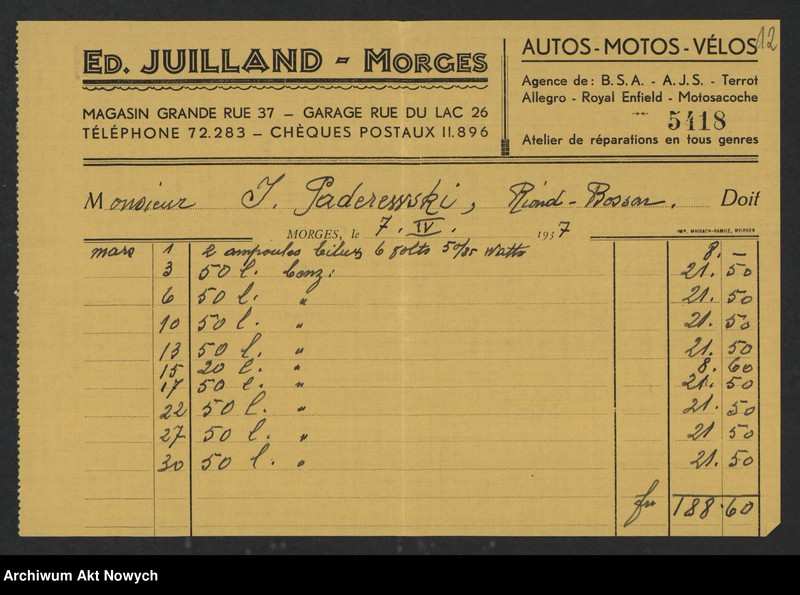 12
ED. JUILLAND - MORGES
MAGASIN GRANDE RUE 37 – GARAGE RUE DU LAC 26
TÉLÉPHONE 72.283 – CHÈQUES POSTAUX II.896
AUTOS - MOTOS - VÉLOS
Agence de: B.S.A. - A.J.S. - Terrot
Allegro - Royal Enfield - Motosacoche
5418
Atelier de réparations en tous genres
Monsieur J. Paderewski, Riond-Bosson. Doit
MORGES, le 7. IV. 1937
IMP. MAIBACH-RAMUZ, MORGES
mars 1 2 ampoules bilux 6 volts 50/35 watts 8. —
3 50 l. benz: 21. 50
6 50 l. " 21. 50
10 50 l. " 21. 50
13 50 l. " 21. 50
15 20 l. " 8. 60
17 50 l. " 21. 50
22 50 l. " 21. 50
27 50 l. " 21 50
30 50 l. " 21. 50
fr 188.60
Archiwum Akt Nowych